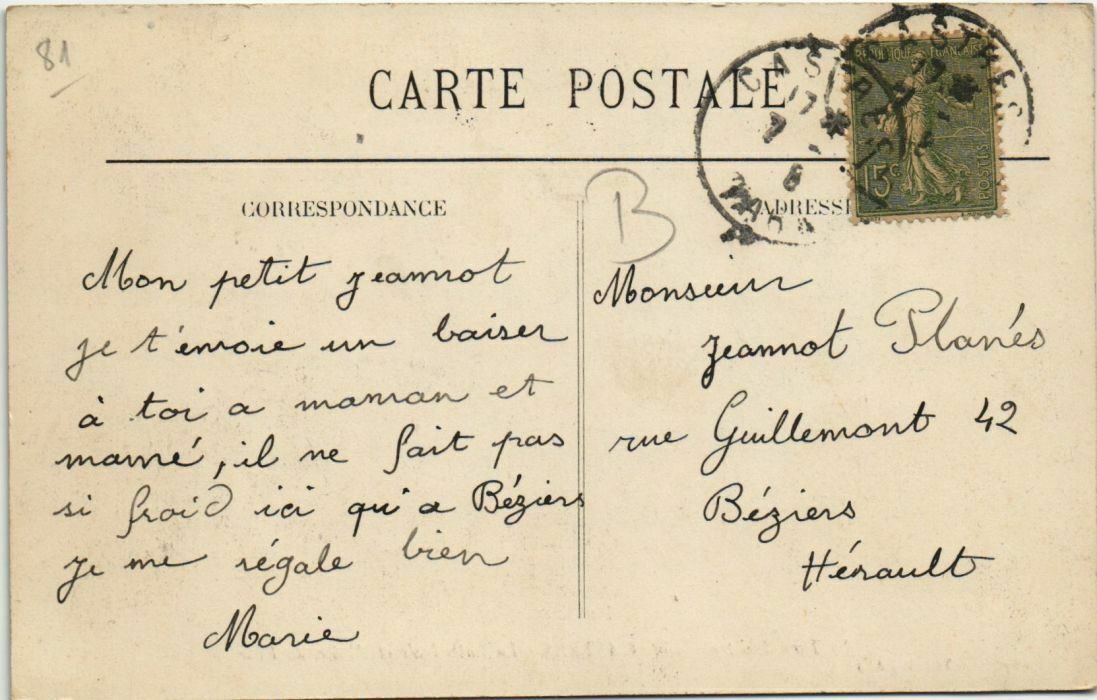 81
CARTE POSTALE
CORRESPONDANCE
B
ADRESSE
REPUBLIQUE FRANÇAISE
15c
POSTES
CASTRES
TARN
Mon petit jeannot
je t'envoie un baiser
à toi a maman et
mamé, il ne fait pas
si froid ici qu'a Béziers
je me régale bien
Marie
Monsieur
Jeannot Planés
rue Guillemont 42
Béziers
Hérault